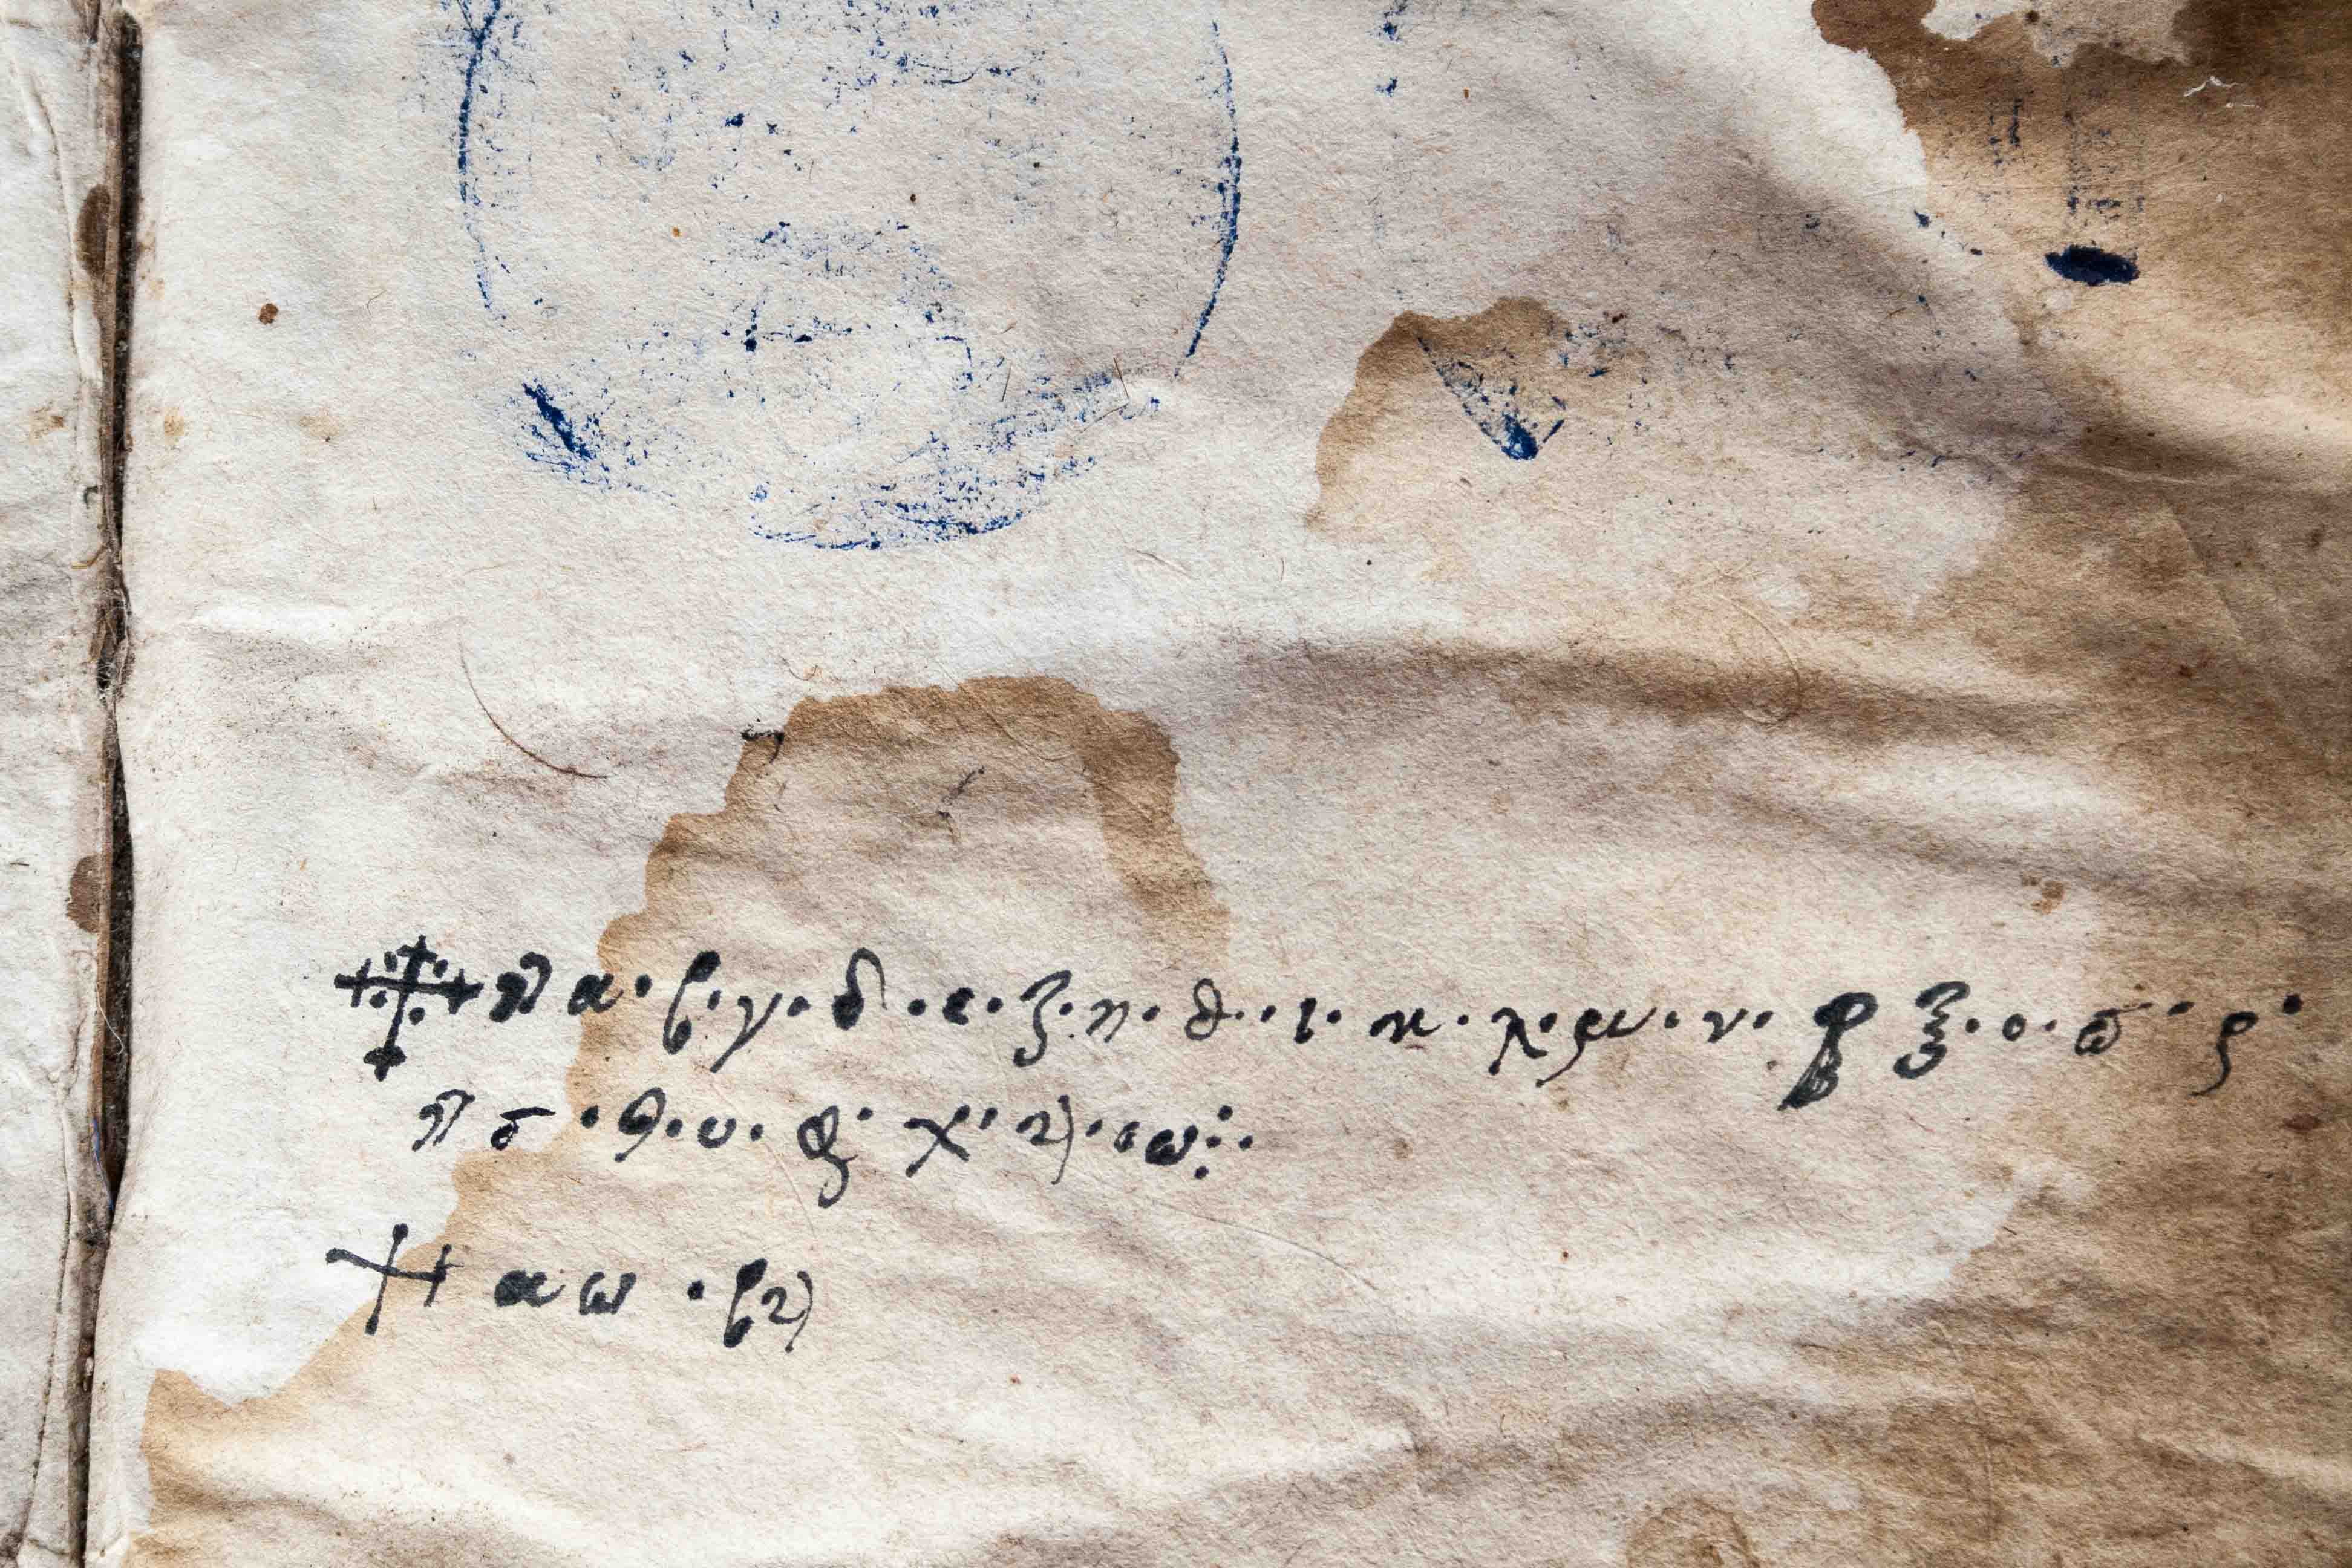 ☩ π α · β · γ · δ · ε · ζ · η · θ · ι · κ · λ · μ · ν · ξ · ο · ϖ · ρ ·
π σ · τ · υ · φ · χ · ψ · ω
+ α ω · β ψ